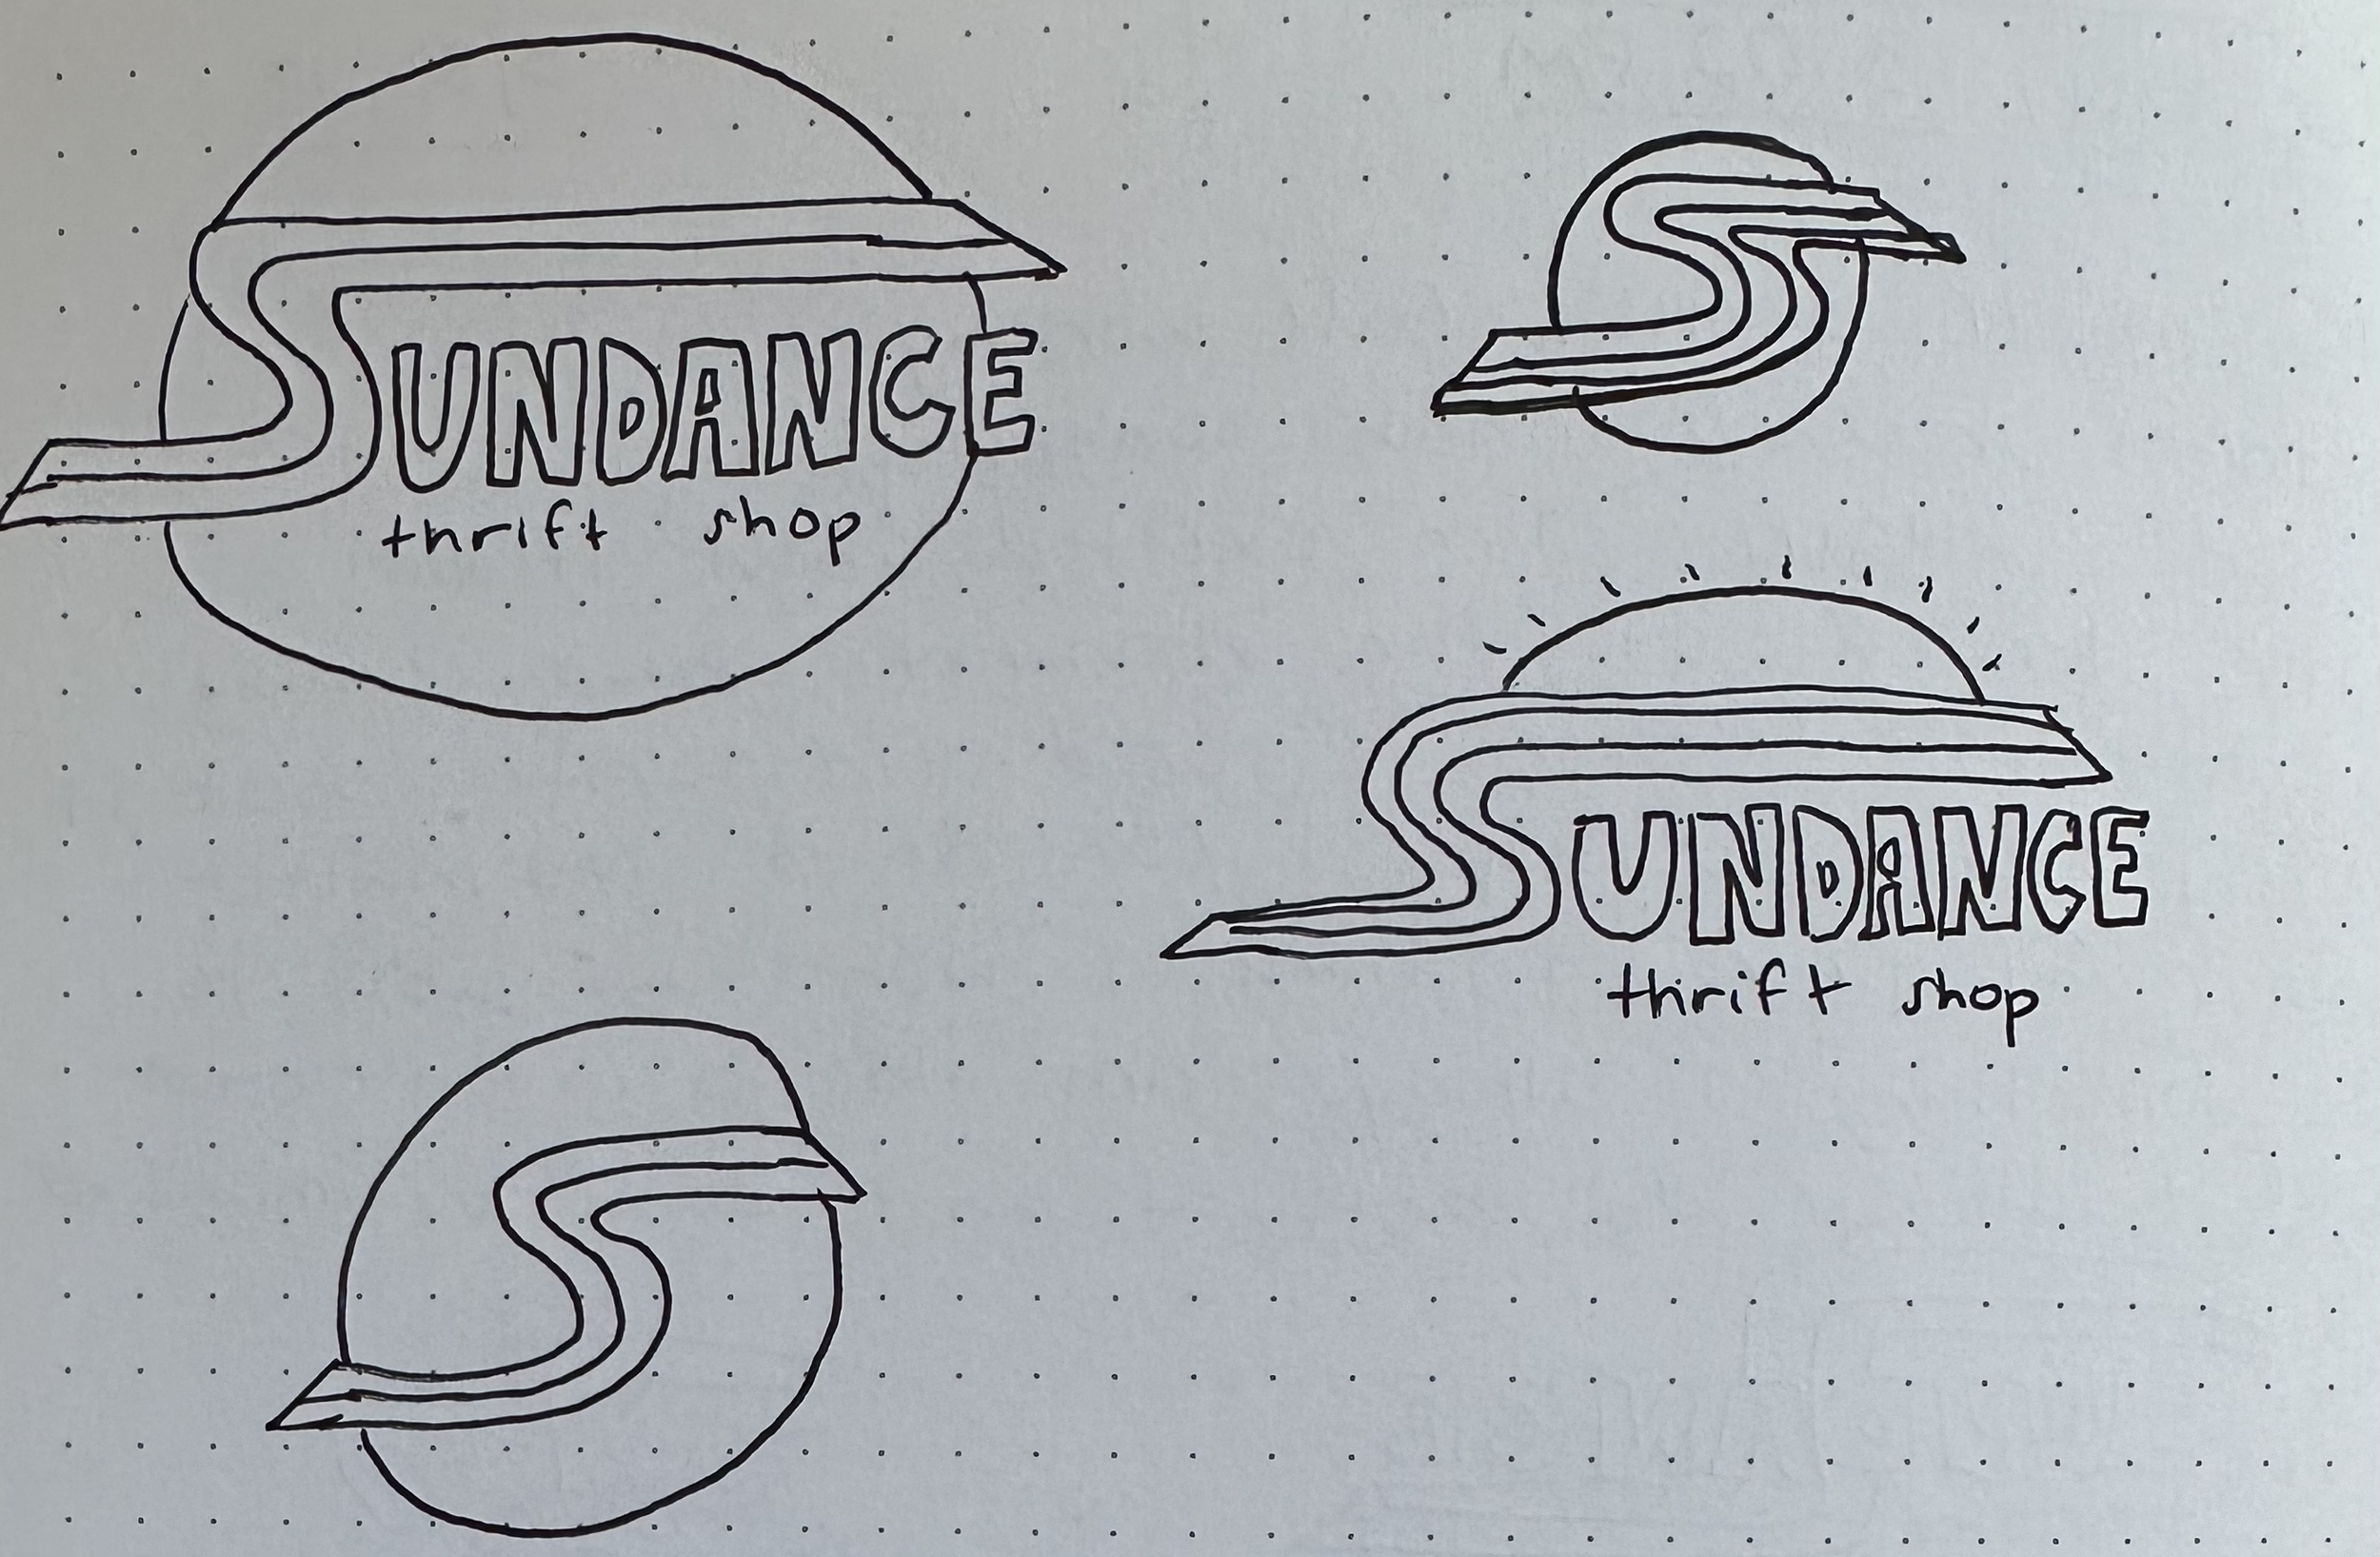 SUNDANCE
thrift shop
S
SUNDANCE
thrift shop
S